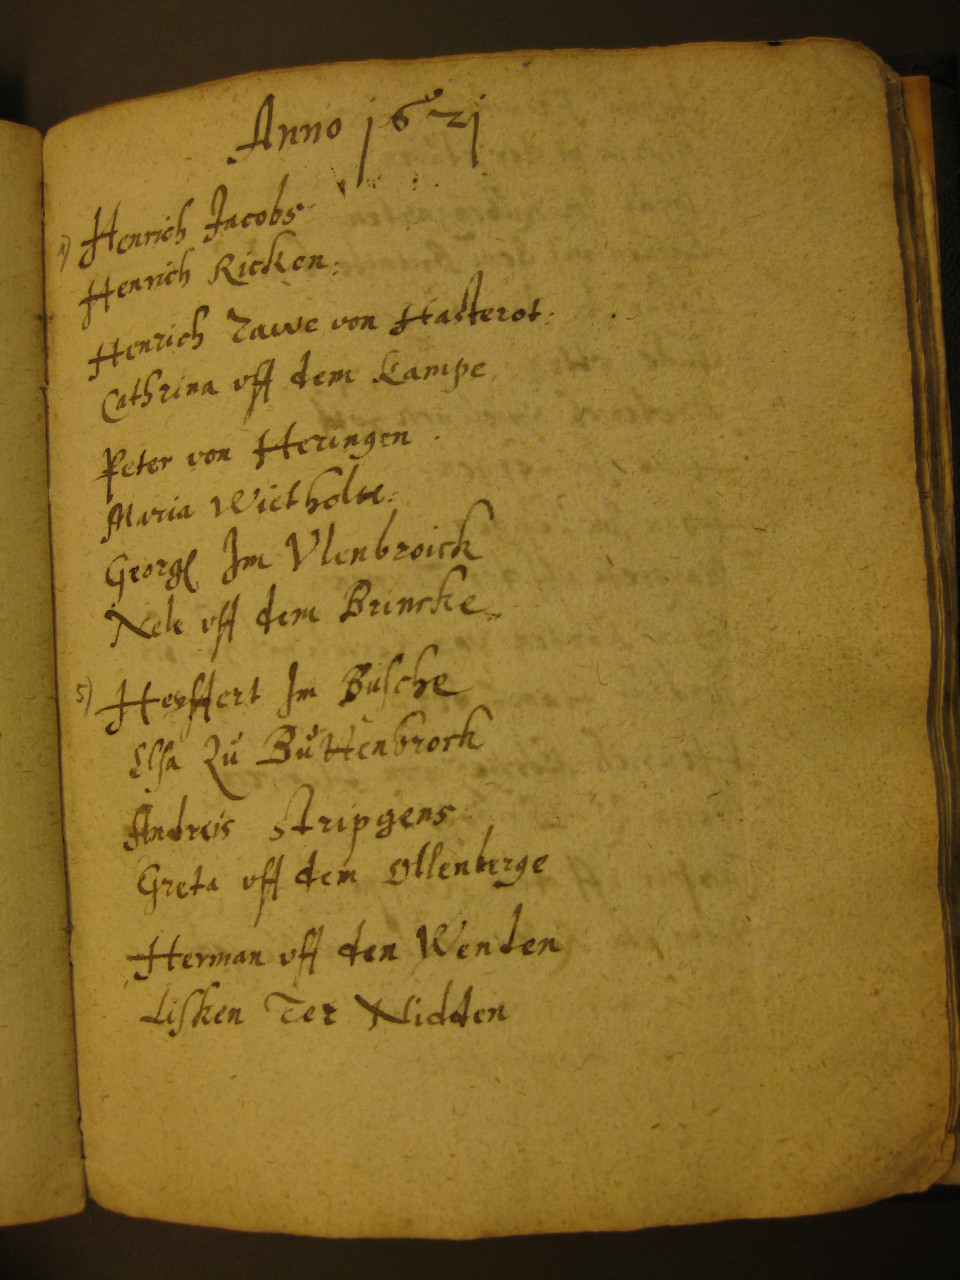 Anno 1621
1) Henrich Jacobs
Henrich Ricken.
Henrich Tawe von Hasterot.
Cathrina uff dem Kampe
Peter von Heringen.
Maria Wietholtz.
Georg Im Vlenbroick
Nele uff dem Brincke.
5) Heyffert Im Busche
Elsa Zu Buttenbrock
Andreis Stripgens
Greta uff dem Ollenberge
Herman uff den Wenden
Lisken Ter Nidden